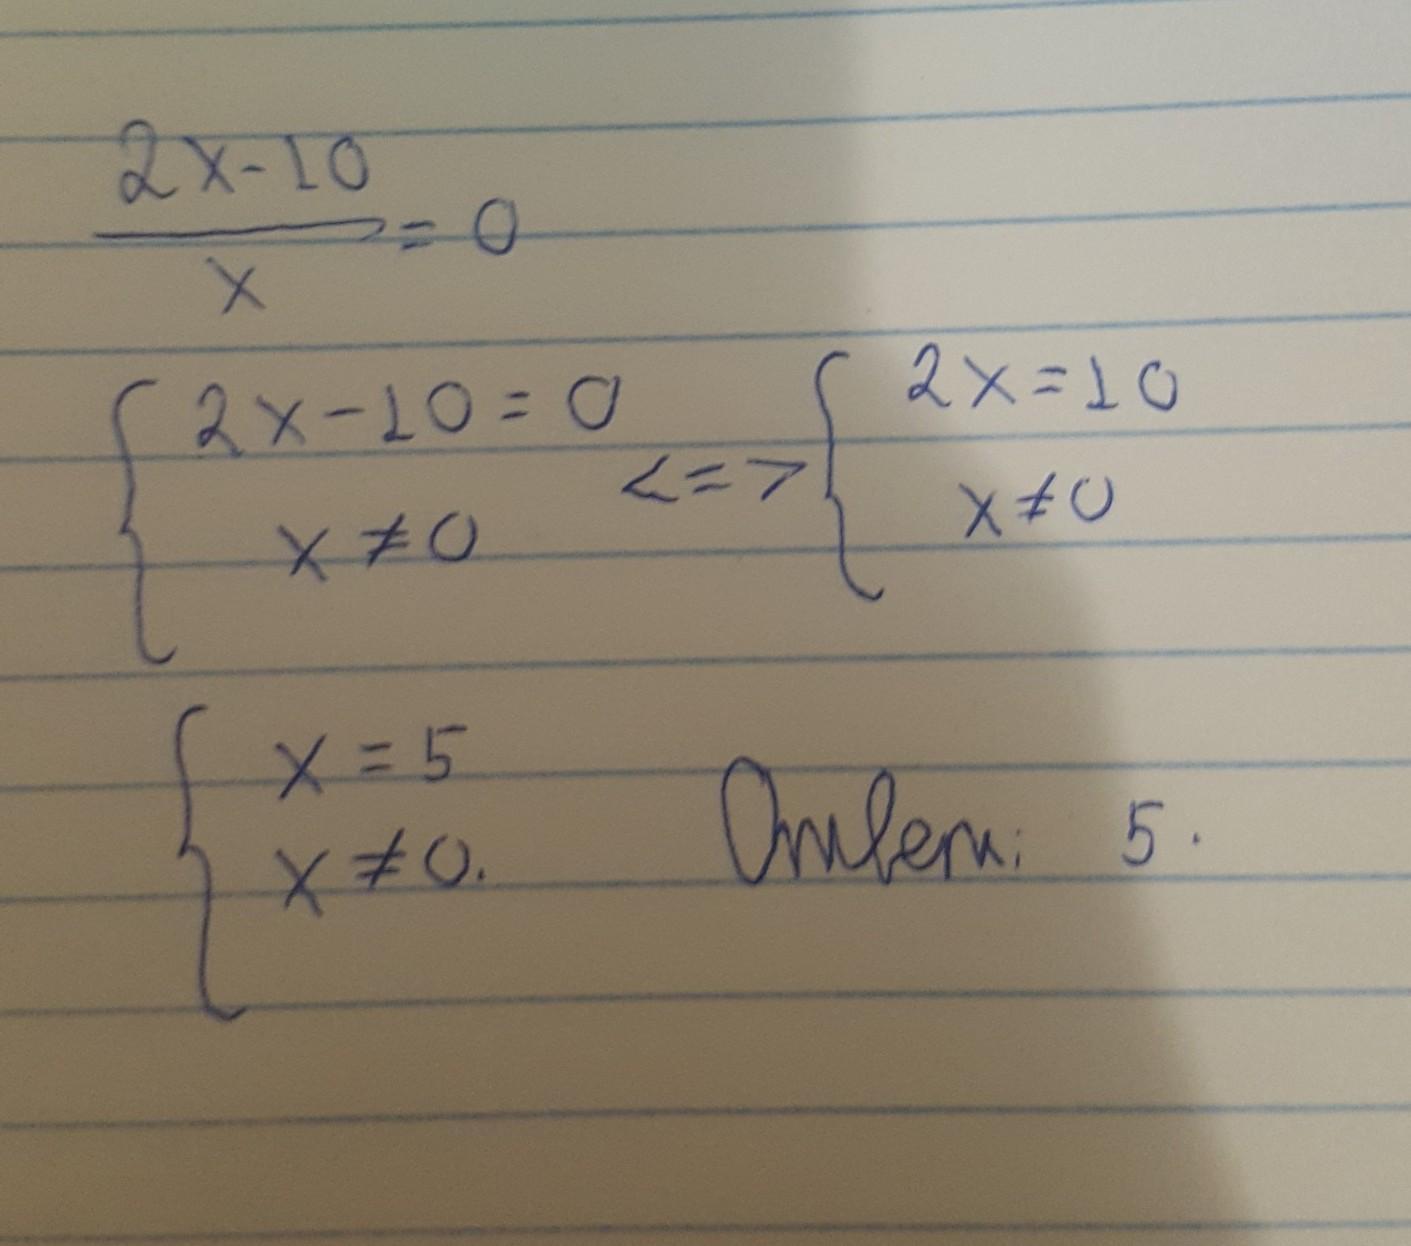 2x-10
x
= 0
{ 2x-10=0
x≠0
<=>
{ 2x=10
x≠0
{ x=5
x≠0.
Ответ: 5.